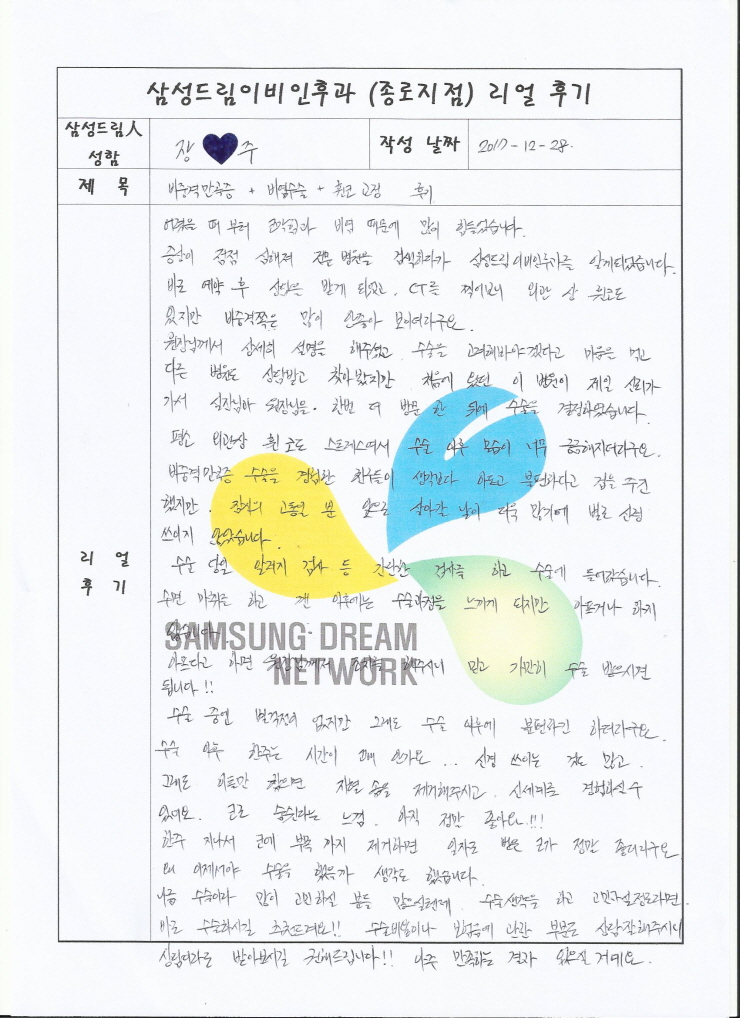 삼성드림이비인후과 (종로지점) 리얼 후기
삼성드림人
성함
장 ♥ 주
작성 날짜
2017-12-28.
제 목
비중격만곡증 + 비염수술 + 휜코 교정 후기
어렸을 때 부터 코막힘과 비염 때문에 많이 힘들었습니다.
증상이 점점 심해져 전문 병원을 검색하다가 삼성드림이비인후과를 알게되었습니다.
바로 예약 후 상담을 받게 되었고, CT를 찍어보니 외관 상 휜코도
있지만 비중격쪽은 많이 안좋아 보이더라구요.
원장님께서 상세히 설명을 해주셨고, 수술을 고려해봐야겠다고 마음은 먹고
다른 병원도 상담받고 찾아봤지만 처음에 왔던 이 병원이 제일 신뢰가
가서 실장님과 원장님을 한번 더 방문 한 뒤에 수술을 결정하였습니다.
평소 외관상 휜코도 스트레스여서 수술 이후 모습이 너무 궁금해지더라구요.
비중격만곡증 수술을 경험한 친구들이 생각보다 아프고 불편하다고 겁을 주긴
했지만, 잠시의 고통일 뿐 앞으로 살아갈 날이 더욱 많기에 별로 신경
쓰이지 않았습니다.
수술 당일 알러지 검사 등 간단한 검사를 하고 수술에 들어갔습니다.
수면 마취를 하고 깬 이후에는 수술과정을 느끼게 되지만 아프거나 하지
않습니다.
SAMSUNG DREAM
NETWORK
아프다고 하면 원장님께서 조치를 해주시니 믿고 가만히 수술 받으시면
됩니다!!
수술 중엔 별걱정이 없지만 그래도 수술 이후에 불편하긴 하더라구요.
수술 이후 한주는 시간이 꽤 안가요... 신경 쓰이는 것도 많고.
그래도 이틀만 참으면 지혈 솜을 제거해주시고, 신세계를 경험하실 수
있어요. 코로 숨쉰다는 느낌. 아직 정말 좋아요!!!
한주 지나서 코에 부목 까지 제거하면 일자로 뻗은 코가 정말 좋더라구요.
왜 이제서야 수술을 했을까 생각도 했습니다.
나름 수술이라 많이 고민하실 분들 많으실텐데, 수술생각을 하고 고민하실정도라면
바로 수술하시길 추천드려요!! 수술비용이나 보험등에 관한 부분도 상담잘해주시니
상담이라도 받아보시길 권해드립니다!! 아주 만족하는 결과 있으실 거예요.
리 얼
후 기